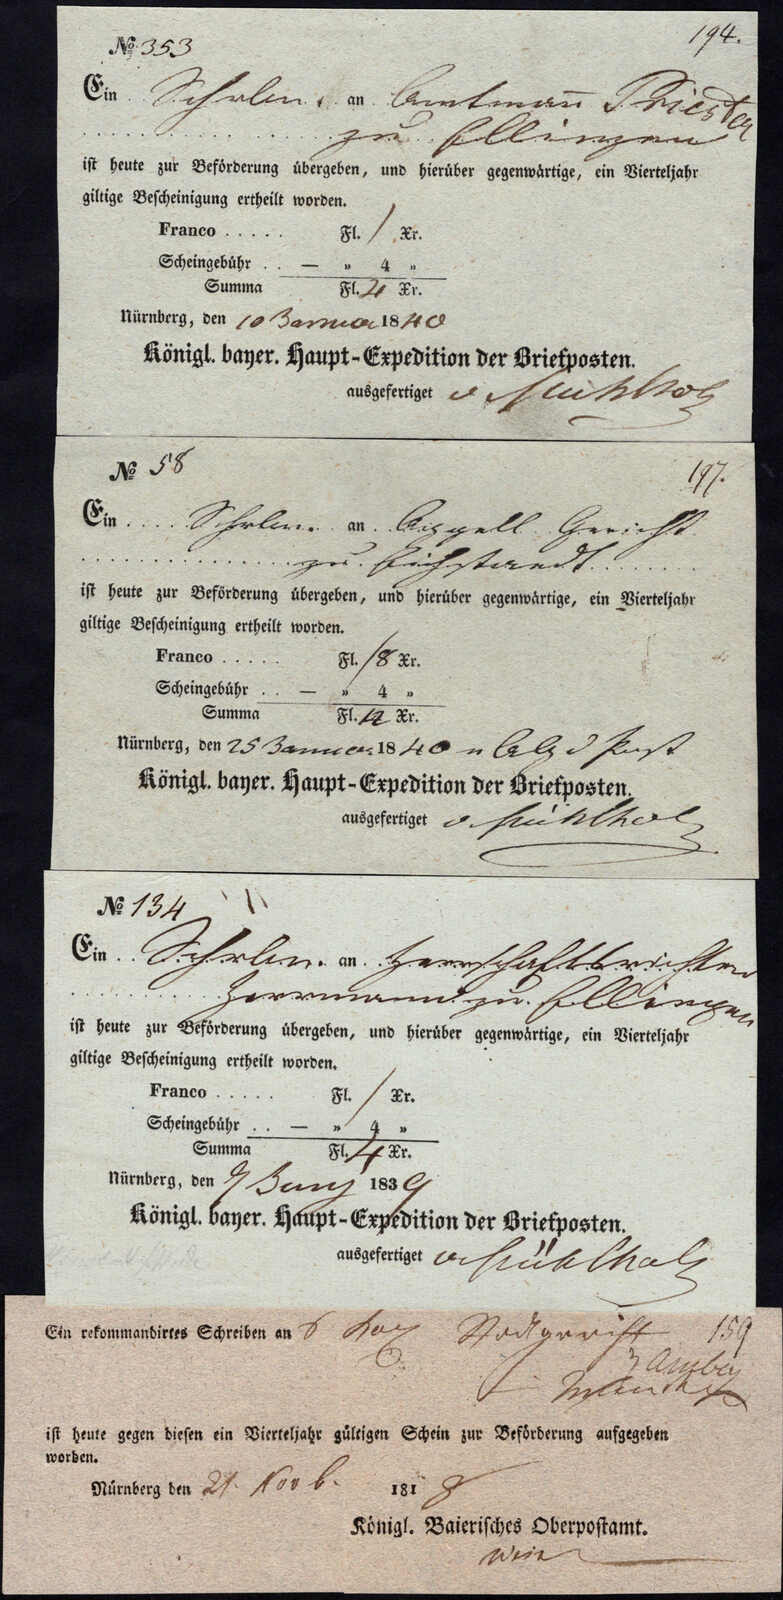 № 353 194.
Ein Schrbn. an Amtmann Priester
zu Ellingen
ist heute zur Beförderung übergeben, und hierüber gegenwärtige, ein Vierteljahr
giltige Bescheinigung ertheilt worden.
Franco . . . . . Fl. / Xr.
Scheingebühr . . — „ 4 „
Summa Fl. 4 Xr.
Nürnberg, den 10 Januar 1840
Königl. bayer. Haupt-Expedition der Briefposten.
ausgefertiget v Mühlholz
№ 58 197.
Ein .... Schrbn. an Appell Gericht
zu Eichstaedt
ist heute zur Beförderung übergeben, und hierüber gegenwärtige, ein Vierteljahr
giltige Bescheinigung ertheilt worden.
Franco . . . . . Fl. /8 Xr.
Scheingebühr . . — „ 4 „
Summa Fl. 12 Xr.
Nürnberg, den 25 Januar 1840 Post
Königl. bayer. Haupt-Expedition der Briefposten.
ausgefertiget v Mühlholz
№ 134
Ein . . Schrbn. an Herrschaftsrichter
Herrmann zu Ellingen
ist heute zur Beförderung übergeben, und hierüber gegenwärtige, ein Vierteljahr
giltige Bescheinigung ertheilt worden.
Franco . . . . . Fl. / Xr.
Scheingebühr . . — „ 4 „
Summa Fl. 4 Xr.
Nürnberg, den 9 Juny 1839
Königl. bayer. Haupt-Expedition der Briefposten.
ausgefertiget v Mühlholz
Ein rekommandirtes Schreiben an Stadtgericht 159
ist heute gegen diesen ein Vierteljahr gültigen Schein zur Beförderung aufgegeben
worden.
Nürnberg den 21. Novb. 1818
Königl. Baierisches Oberpostamt.